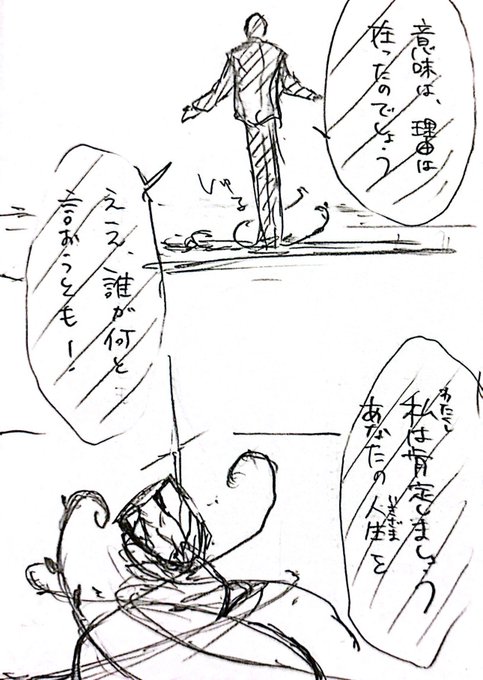 意味は、理由は
在ったのでしょう
しゅる
ええ、誰が何と
言おうとも!
わたくし
私は肯定しましょう
いきざま
あなたの人生を